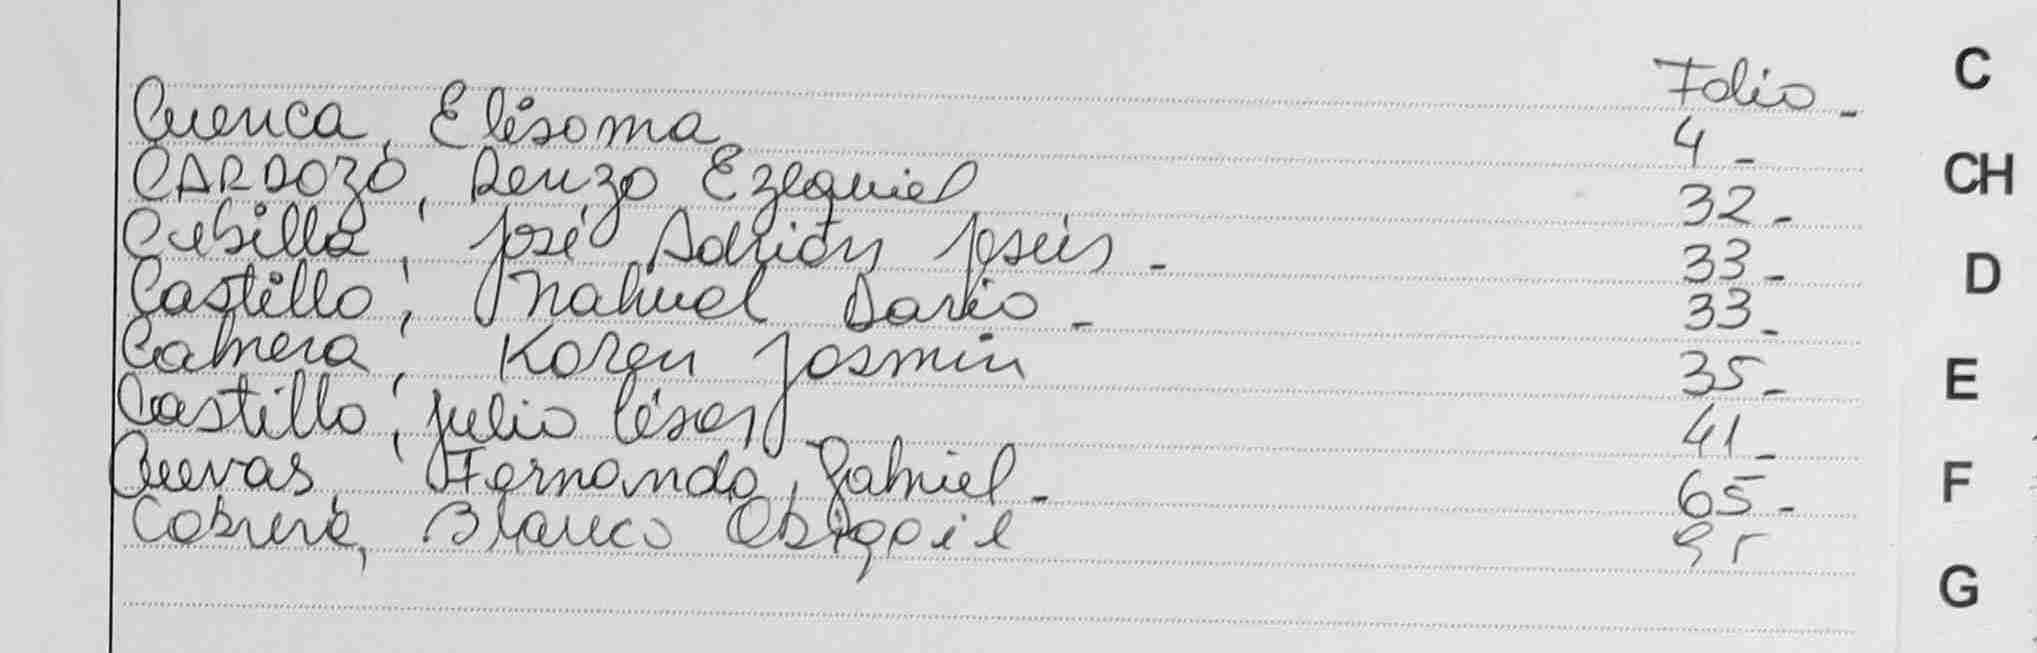 Folio - C
Cuenca, Elisoma 4 -
CARDOZO, Renzo Ezequiel 32 - CH
Cubilla, José Adrián Jesús - 33 - D
Castillo, Nahuel Dario - 33 -
Cabrera, Karen Jasmin 35 - E
Castillo, Julio César 41 -
Cuevas, Fernando Gabriel - 65 - F
Cabrera, Blanco Abigail 95
G